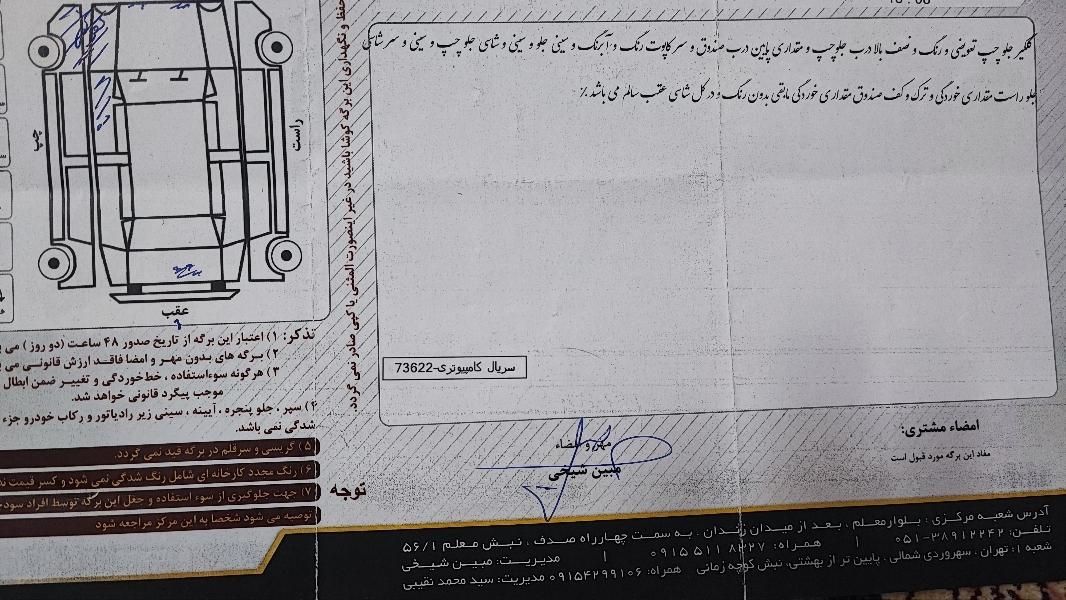 گلگیر جلو چپ تعویض و رنگ و نصف بالا درب جلو چپ و مقداری پایین درب صندوق و سر کاپوت رنگ و آبرنگ و سینی جلو و سینی و شاسی جلو چپ و سینی و سر شاسی
جلو راست مقداری خوردگی و ترک و کف صندوق مقداری خوردگی مابقی بدون رنگ و در کل شاسی عقب سالم می باشد ٪
سریال کامپیوتری-73622
مهر و امضاء
مبین شیخی
امضاء مشتری:
مفاد این برگه مورد قبول است
حفظ و نگهداری این برگه کوشا باشید در غیر اینصورت المثنی یا کپی صادر نمی گردد.
چپ
راست
عقب
تذکر: ۱) اعتبار این برگه از تاریخ صدور ۴۸ ساعت (دو روز) می
۲) برگه های بدون مهر و امضا فاقد ارزش قانونی می
۳) هرگونه سوءاستفاده ، خط‌خوردگی و تغییر ضمن ابطال
موجب پیگرد قانونی خواهد شد.
۴) سپر ، جلو پنجره ، آیینه ، سینی زیر رادیاتور و رکاب خودرو جزء
شدگی نمی باشد.
۵) گریسی و سرقلم در برگه قید نمی گردد.
۶) رنگ مجدد کارخانه ای شامل رنگ شدگی نمی شود و کسر قیمت
۷) جهت جلوگیری از سوء استفاده و جعل این برگه توسط افراد
توصیه می شود شخصا به این مرکز مراجعه شود
توجه
آدرس شعبه مرکزی : بلوار معلم ، بعد از میدان زندان ، به سمت چهارراه صدف ، نبش معلم ۵۶/۱
تلفن: ۳۸۹۱۲۲۴۲-۰۵۱ | همراه: ۰۹۱۵ ۵۱۱ ۸۲۲۷ | مدیریت: مبین شیخی
شعبه ۱: تهران ، سهروردی شمالی ، پایین تر از بهشتی، نبش کوچه زمانی همراه: ۰۹۱۵۴۲۹۹۱۰۶ مدیریت: سید محمد نقیبی